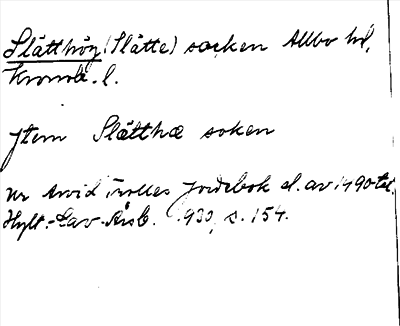 Slätthög (Slätte) socken Allbo hd,
Kronob. l.
Jtem Slätthæ soken
ur Arvid Trolles Jordebok sl. av 1490-tal.
Hylt.-Cav. Årsb. 1930, s. 154.